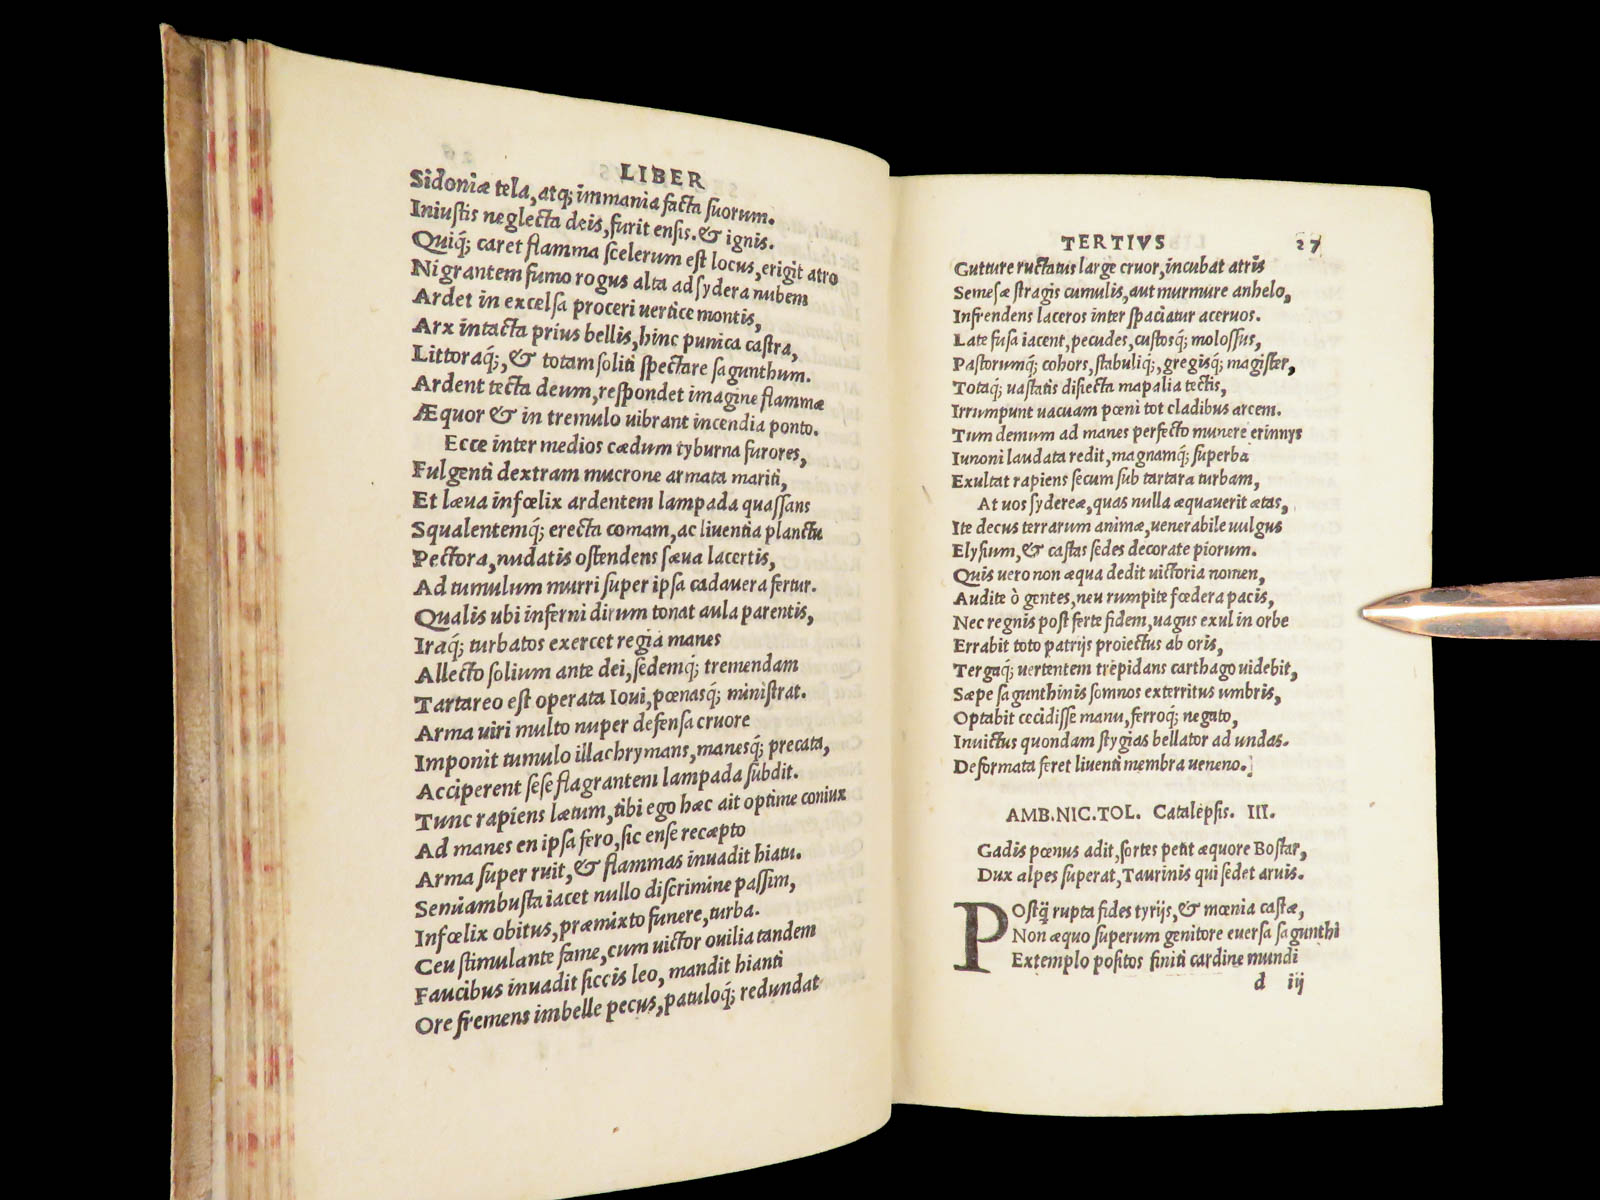 LIBER
Sidoniæ tela, atq; immania facta ſuorum.
Iniuſtis neglecta deis, furit enſis. & ignis.
Quiq́; caret flamma ſcelerum eſt locus, erigit atro
Nigrantem fumo rogus alta ad ſydera nubem
Ardet in excelſa proceri uertice montis,
Arx intacta prius bellis, hinc punica caſtra,
Littoraq́;, & totam ſoliti ſpectare ſagunthum.
Ardent tecta deum, reſpondet imagine flammæ
Æquor & in tremulo uibrant incendia ponto.
Ecce inter medios cædum tyburna furores,
Fulgenti dextram mucrone armata mariti,
Et læua infœlix ardentem lampada quaſſans
Squalentemq́; erecta comam, ac liuentia planctu
Pectora, nudatis oſtendens ſæua lacertis,
Ad tumulum murri ſuper ipſa cadauera fertur.
Qualis ubi inferni dirum tonat aula parentis,
Iraq́; turbatos exercet regia manes
Allecto ſolium ante dei, ſedemq́; tremendam
Tartareo eſt operata Ioui, pœnasq́; miniſtrat.
Arma uiri multo nuper defenſa cruore
Imponit tumulo illachrymans, manesq́; precata,
Acciperent ſeſe flagrantem lampada ſubdit.
Tunc rapiens lætum, tibi ego hæc ait optime coniux
Ad manes en ipſa fero, ſic enſe recæpto
Arma ſuper ruit, & flammas inuadit hiatu.
Semiambuſta iacet nullo diſcrimine paſſim,
Infœlix obitus, præmixto funere, turba.
Ceu ſtimulante fame, cum uictor ouilia tandem
Faucibus inuadit ſiccis leo, mandit hianti
Ore fremens imbelle pecus, patuloq́; redundat
TERTIVS 27
Gutture ructatus large cruor, incubat atris
Semeſæ ſtragis cumulis, aut murmure anhelo,
Infrendens laceros inter ſpaciatur aceruos.
Late fuſa iacent, pecudes, cuſtosq́; moloſſus,
Paſtorumq́; cohors, ſtabuliq́;, gregisq́; magiſter,
Totaq́; uaſtatis diſiecta mapalia tectis,
Irrumpunt uacuam pœni tot cladibus arcem.
Tum demum ad manes perfecto munere erinnys
Iunoni laudata redit, magnamq́; ſuperba
Exultat rapiens ſecum ſub tartara turbam,
At uos ſydereæ, quas nulla æquauerit ætas,
Ite decus terrarum animæ, uenerabile uulgus
Elyſium, & caſtas ſedes decorate piorum.
Quis uero non æqua dedit uictoria nomen,
Audite ò gentes, neu rumpite fœdera pacis,
Nec regnis poſt ferte fidem, uagus exul in orbe
Errabit toto patrijs proiectus ab oris,
Tergaq́; uertentem trepidans carthago uidebit,
Sæpe ſagunthinis ſomnos exterritus umbris,
Optabit cecidiſſe manu, ferroq́; negato,
Inuictus quondam ſtygias bellator ad undas.
Deformata feret liuenti membra ueneno.
AMB.NIC.TOL. Catalepſis. III.
Gadis pœnus adit, ſortes petit æquore Boſtar,
Dux alpes ſuperat, Taurinis qui ſedet aruis.
POſtq̃ rupta fides tyrijs, & mœnia caſtæ,
Non æquo ſuperum genitore euerſa ſagunthi
Extemplo poſitos finiti cardine mundi
d iij